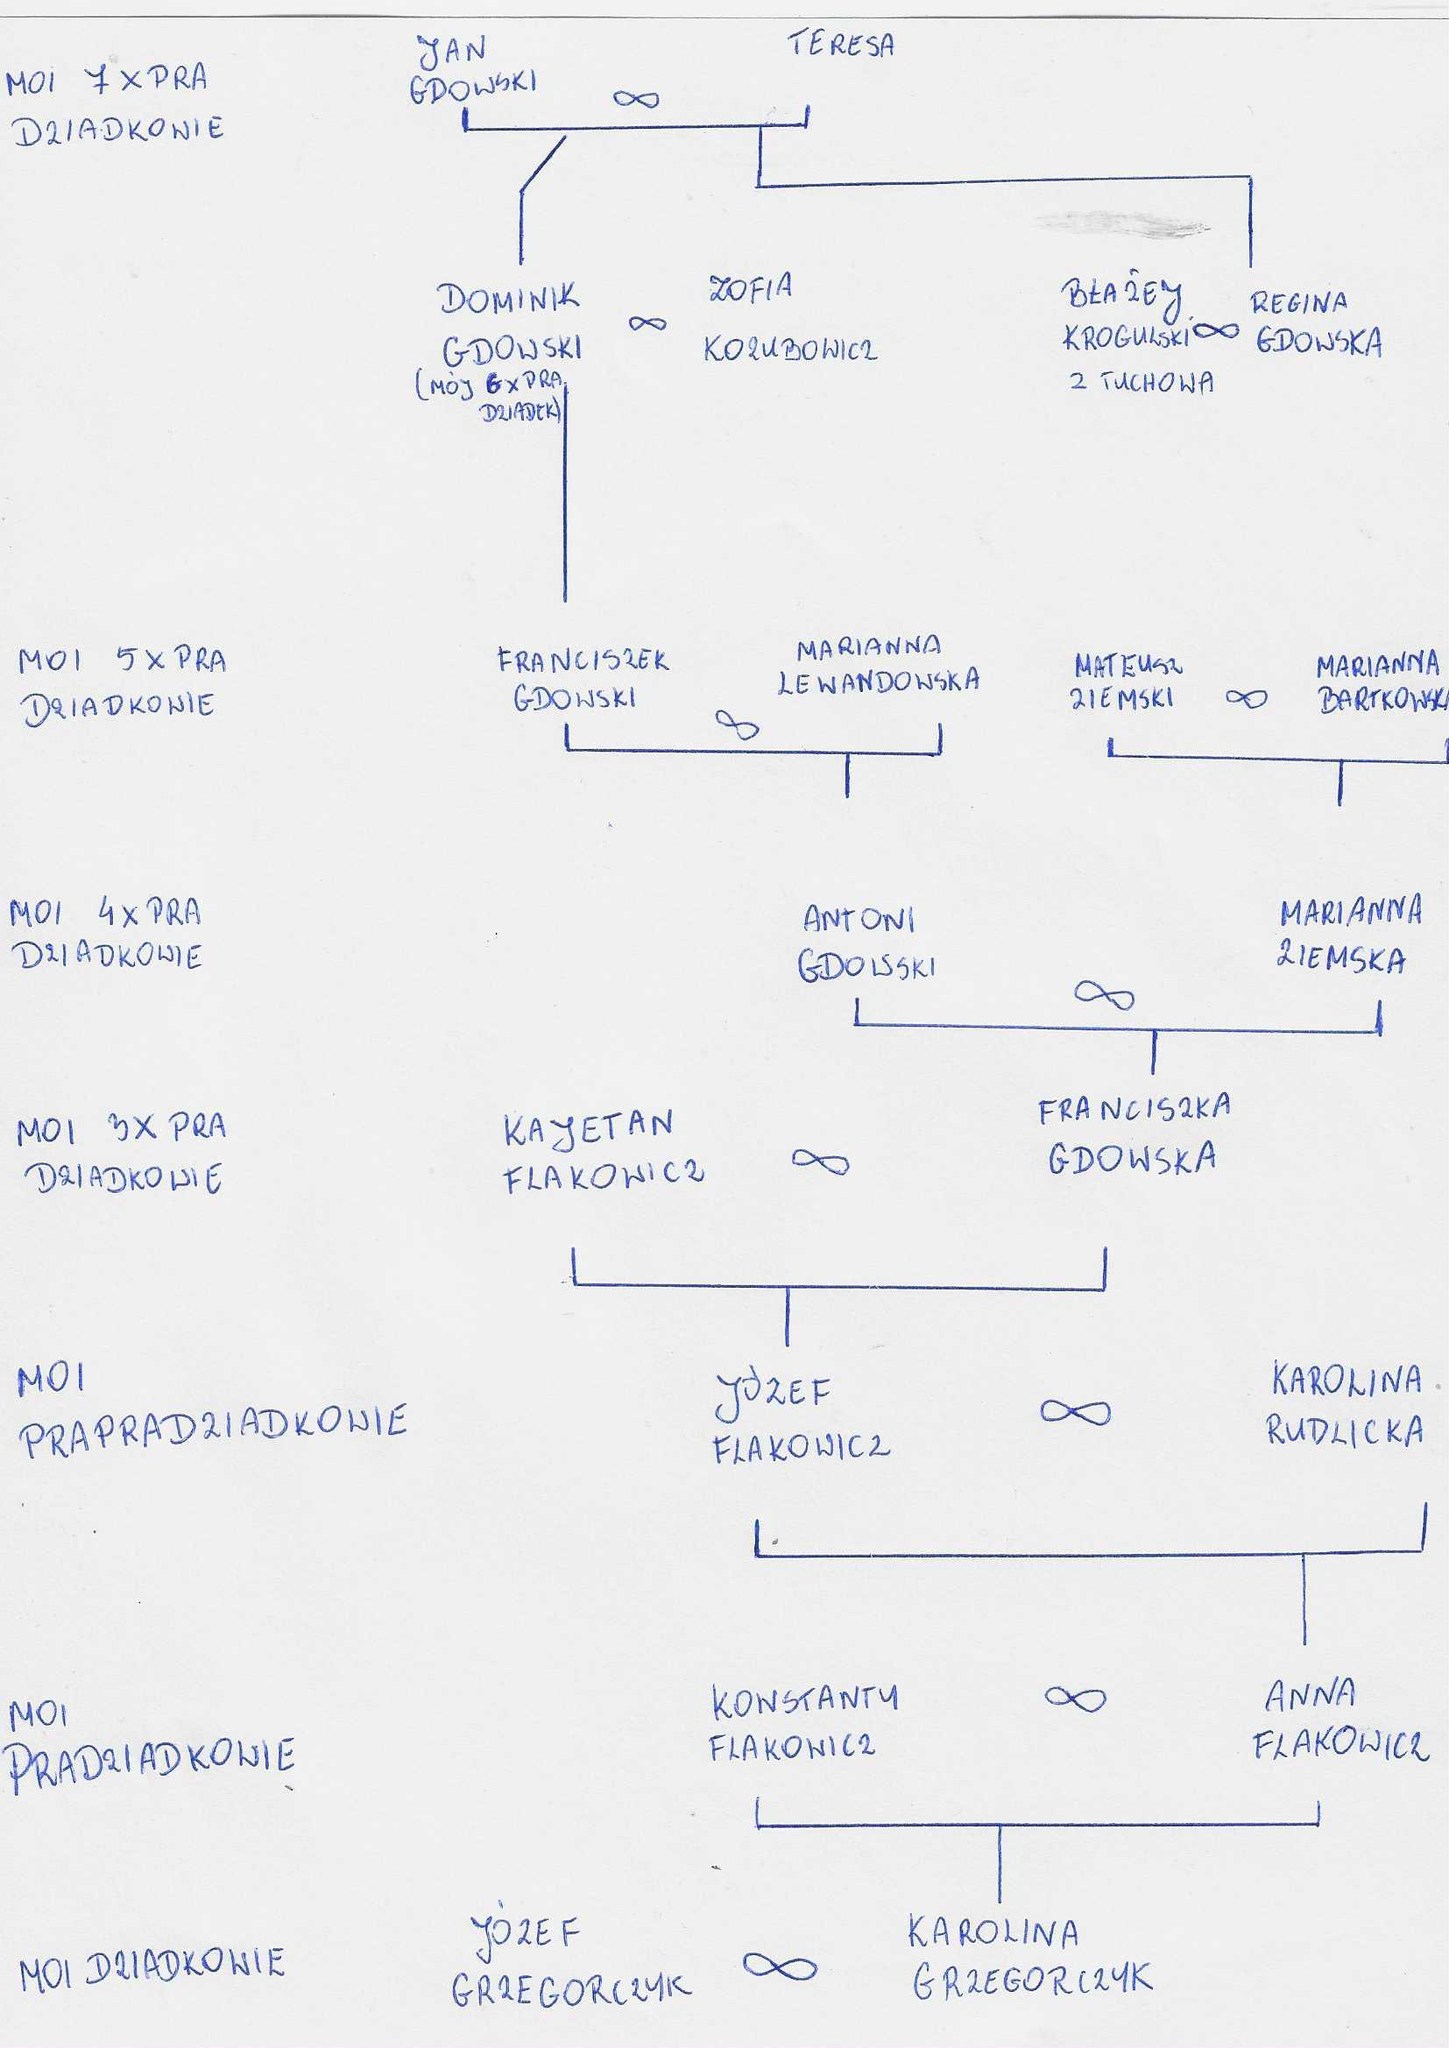 JAN
TERESA
MOI 7 X PRA
GDOWSKI
∞
DZIADKOWIE
DOMINIK
ZOFIA
BŁAŻEJ
REGINA
GDOWSKI
∞
KOZUBOWICZ
KROGULSKI ∞ GDOWSKA
(MÓJ 6 X PRA
DZIADEK)
Z TUCHOWA
MOI 5 X PRA
FRANCISZEK
MARIANNA
MATEUSZ
MARIANNA
DZIADKOWIE
GDOWSKI
∞
LEWANDOWSKA
ZIEMSKI
∞
BARTKOWSKA
MOI 4 X PRA
ANTONI
MARIANNA
DZIADKOWIE
GDOWSKI
∞
ZIEMSKA
MOI 3X PRA
KAJETAN
FRANCISZKA
DZIADKOWIE
FLAKOWICZ
∞
GDOWSKA
MOI
JÓZEF
KAROLINA
PRAPRADZIADKOWIE
FLAKOWICZ
∞
RUDLICKA
MOI
KONSTANTY
∞
ANNA
PRADZIADKOWIE
FLAKOWICZ
FLAKOWICZ
JÓZEF
KAROLINA
MOI DZIADKOWIE
GRZEGORCZYK
∞
GRZEGORCZYK